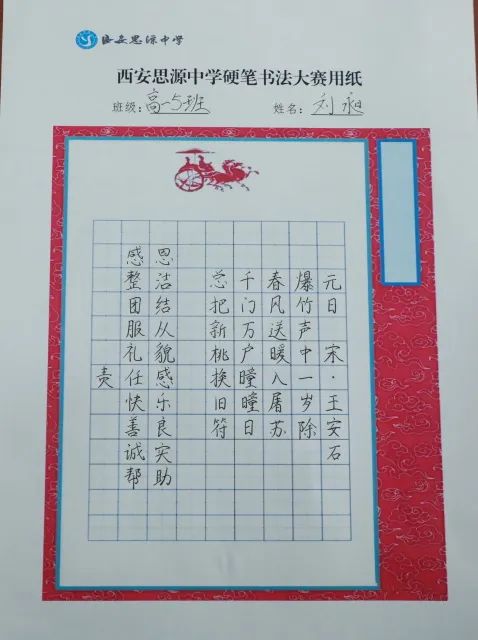 西安思源中学
西安思源中学硬笔书法大赛用纸
班级：高一5班 姓名：刘昶
元日 宋·王安石
爆竹声中一岁除
春风送暖入屠苏
千门万户瞳瞳日
总把新桃换旧符
感恩
整洁
团结
服从
礼貌
责任感
快乐
善良
诚实
帮助